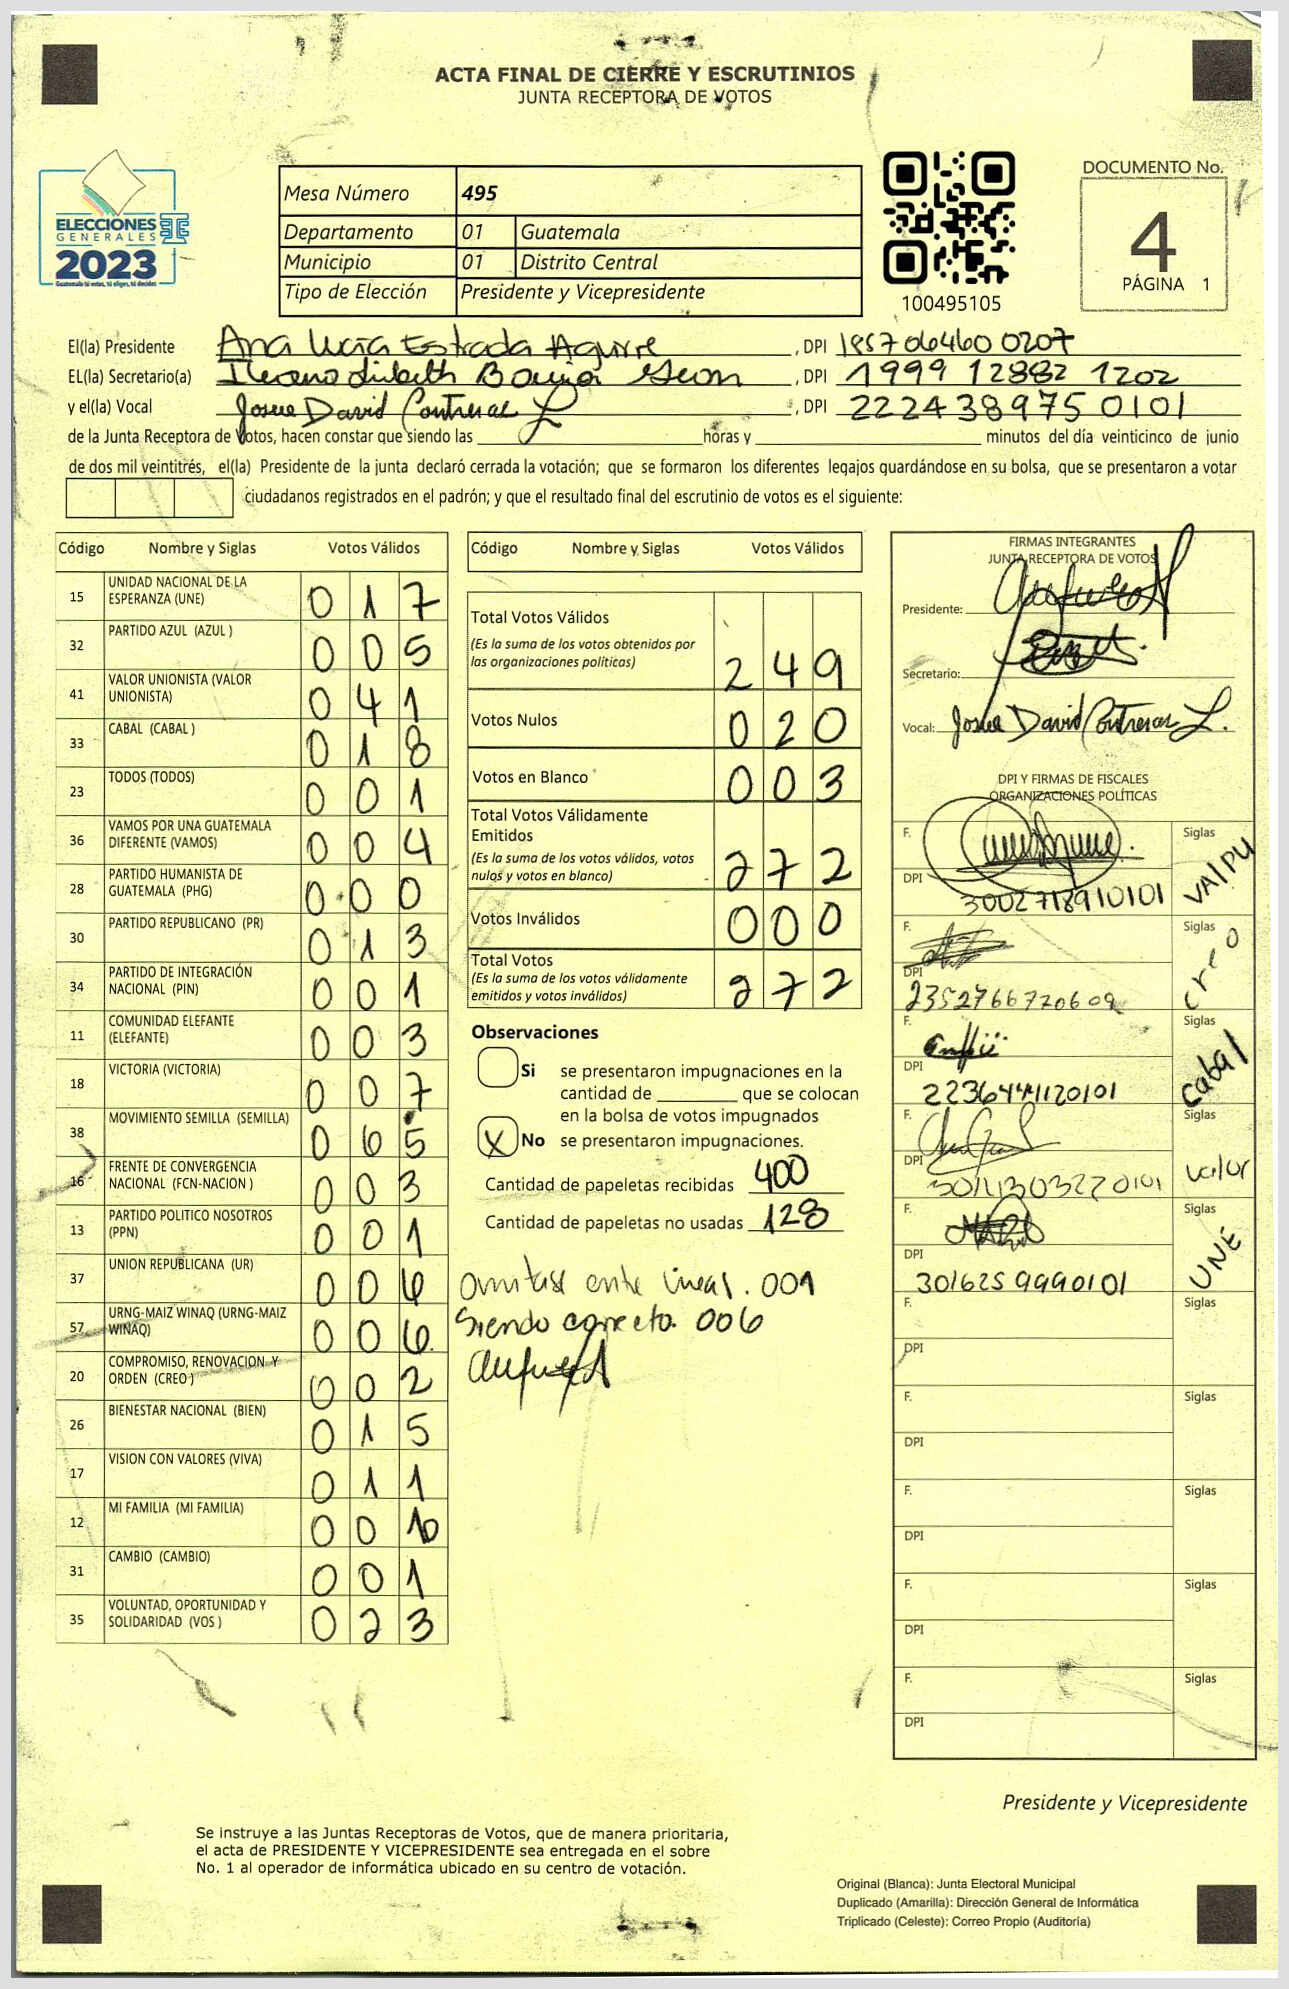 ACTA FINAL DE CIERRE Y ESCRUTINIOS
JUNTA RECEPTORA DE VOTOS
ELECCIONES
GENERALES
2023
Guatemala tú votas, tú eliges, tú decides
Mesa Número 495
Departamento 01 Guatemala
Municipio 01 Distrito Central
Tipo de Elección Presidente y Vicepresidente
100495105
DOCUMENTO No.
4
PÁGINA 1
El(la) Presidente Ana Lucía Estrada Aguirre, DPI 1857064600207
EL(la) Secretario(a), DPI 1999 12882 1202
y el(la) Vocal Josue David Contreras L, DPI 2224389750101
de la Junta Receptora de Votos, hacen constar que siendo las horas y minutos del día veinticinco de junio
de dos mil veintitrés, el(la) Presidente de la junta declaró cerrada la votación; que se formaron los diferentes legajos guardándose en su bolsa, que se presentaron a votar
ciudadanos registrados en el padrón; y que el resultado final del escrutinio de votos es el siguiente:
Código Nombre y Siglas Votos Válidos
15 UNIDAD NACIONAL DE LA ESPERANZA (UNE) 0 1 7
32 PARTIDO AZUL (AZUL ) 0 0 5
41 VALOR UNIONISTA (VALOR UNIONISTA) 0 4 1
33 CABAL (CABAL ) 0 1 8
23 TODOS (TODOS) 0 0 1
36 VAMOS POR UNA GUATEMALA DIFERENTE (VAMOS) 0 0 4
28 PARTIDO HUMANISTA DE GUATEMALA (PHG) 0 0 0
30 PARTIDO REPUBLICANO (PR) 0 1 3
34 PARTIDO DE INTEGRACIÓN NACIONAL (PIN) 0 0 1
11 COMUNIDAD ELEFANTE (ELEFANTE) 0 0 3
18 VICTORIA (VICTORIA) 0 0 7
38 MOVIMIENTO SEMILLA (SEMILLA) 0 6 5
16 FRENTE DE CONVERGENCIA NACIONAL (FCN-NACION ) 0 0 3
13 PARTIDO POLITICO NOSOTROS (PPN) 0 0 1
37 UNION REPUBLICANA (UR) 0 0 6
57 URNG-MAIZ WINAQ (URNG-MAIZ WINAQ) 0 0 6
20 COMPROMISO, RENOVACION Y ORDEN (CREO ) 0 0 2
26 BIENESTAR NACIONAL (BIEN) 0 1 5
17 VISION CON VALORES (VIVA) 0 1 1
12 MI FAMILIA (MI FAMILIA) 0 0
31 CAMBIO (CAMBIO) 0 0 1
35 VOLUNTAD, OPORTUNIDAD Y SOLIDARIDAD (VOS ) 0 2 3
Código Nombre y Siglas Votos Válidos
Total Votos Válidos
(Es la suma de los votos obtenidos por
las organizaciones políticas) 2 4 9
Votos Nulos 0 2 0
Votos en Blanco 0 0 3
Total Votos Válidamente
Emitidos
(Es la suma de los votos válidos, votos
nulos y votos en blanco) 2 7 2
Votos Inválidos 0 0 0
Total Votos
(Es la suma de los votos válidamente
emitidos y votos inválidos) 2 7 2
Observaciones
Si se presentaron impugnaciones en la
cantidad de que se colocan
en la bolsa de votos impugnados
X No se presentaron impugnaciones.
Cantidad de papeletas recibidas 400
Cantidad de papeletas no usadas 128
Omitase entre lineas. 001
Siendo correcto. 006
FIRMAS INTEGRANTES
JUNTA RECEPTORA DE VOTOS
Presidente:
Secretario:
Vocal: Josue David Contreras L.
DPI Y FIRMAS DE FISCALES
ORGANIZACIONES POLÍTICAS
F. Siglas
DPI 3002718910101 VAlPU
F. Siglas
DPI 2352766720609 creo
F. Siglas
DPI 2236441120101 cabal
F. Siglas
DPI valor
F. Siglas
DPI 3016259990101 UNE
F. Siglas
DPI
F. Siglas
DPI
F. Siglas
DPI
F. Siglas
DPI
F. Siglas
DPI
Presidente y Vicepresidente
Se instruye a las Juntas Receptoras de Votos, que de manera prioritaria,
el acta de PRESIDENTE Y VICEPRESIDENTE sea entregada en el sobre
No. 1 al operador de informática ubicado en su centro de votación.
Original (Blanca): Junta Electoral Municipal
Duplicado (Amarilla): Dirección General de Informática
Triplicado (Celeste): Correo Propio (Auditoría)